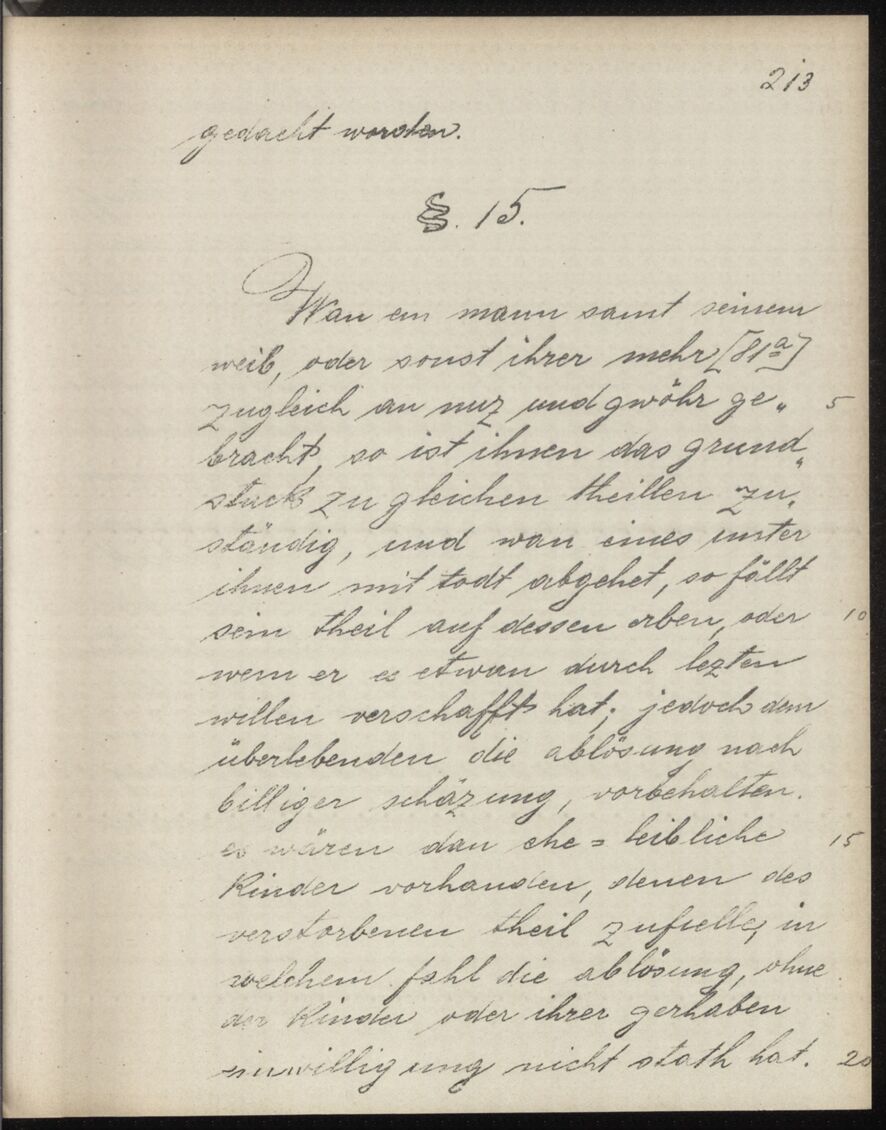 213
gedacht worden.
§. 15.
Wan ein mann samt seinem
weib, oder sonst ihrer mehr [81a]
zugleich an nuz und gwöhr ge„ 5
bracht, so ist ihnen das grund„
stuck zu gleichen theillen zu„
ständig, und wan eines unter
ihnen mit todt abgehet, so fällt
sein theil auf dessen erben, oder 10
wem er es etwan durch lezten
willen verschafft hat; jedoch dem
überlebenden die ablösung nach
billiger schäzung, vorbehalten.
es wären dan ehe = leibliche 15
Kinder vorhanden, denen des
verstorbenen theil zufielle, in
welchem fahl die ablösung, ohne
der Kinder oder ihrer gerhaben
einwilligung nicht stath hat. 20